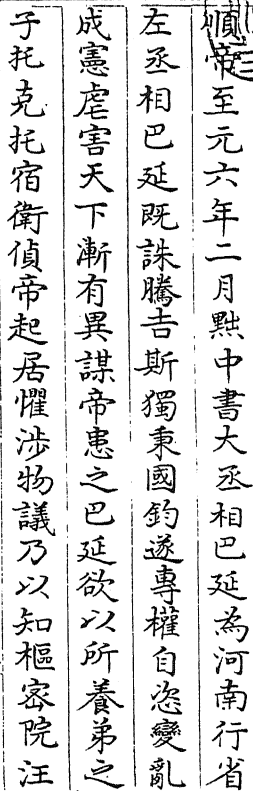 順帝至元六年二月黜中書大丞相巴延為河南行省
左丞相巴延既誅騰吉斯獨秉國鈞遂專權自恣變亂
成憲虐害天下漸有異謀帝患之巴延欲以所養弟之
子托克托宿衛偵帝起居懼涉物議乃以知樞密院汪